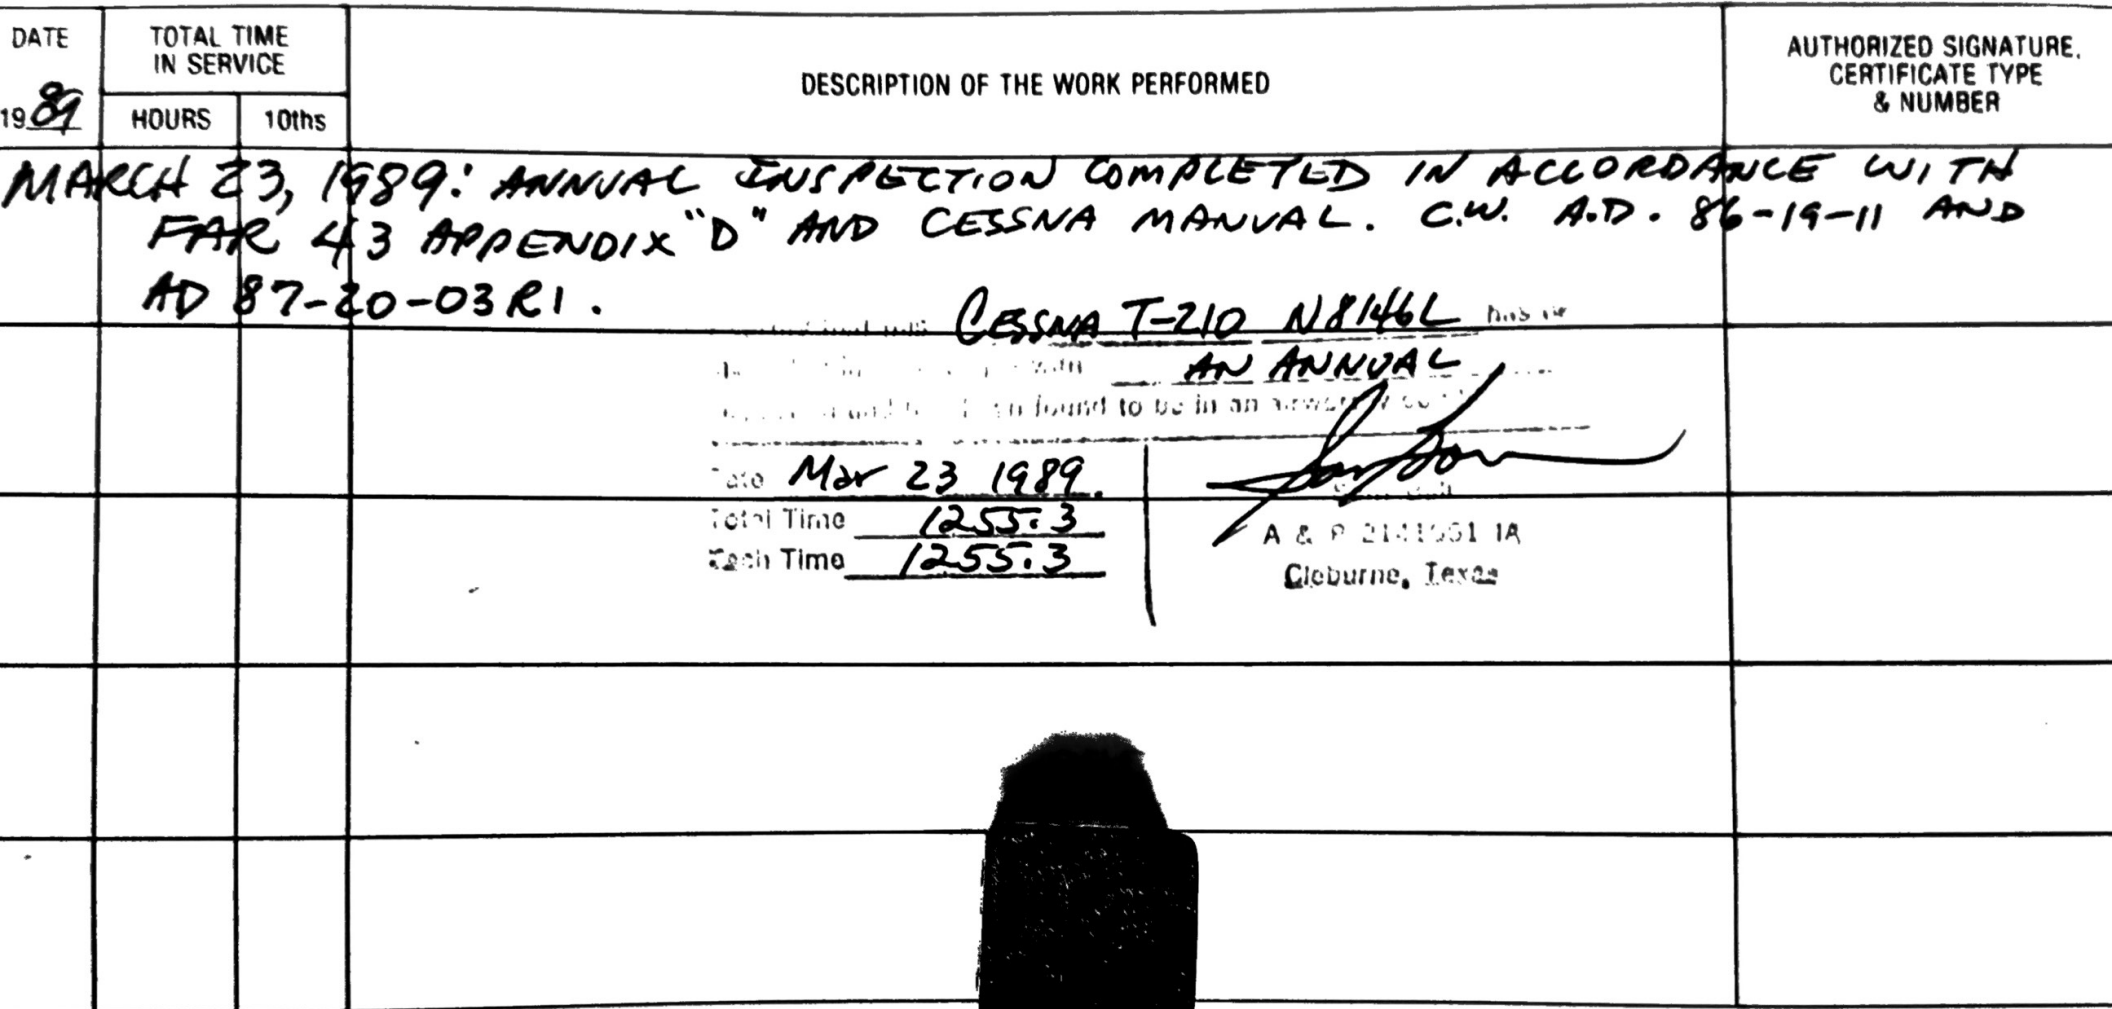 DATE
TOTAL TIME
IN SERVICE
DESCRIPTION OF THE WORK PERFORMED
AUTHORIZED SIGNATURE,
CERTIFICATE TYPE
& NUMBER
1989
HOURS
10ths
MARCH 23, 1989: ANNUAL INSPECTION COMPLETED IN ACCORDANCE WITH
FAR 43 APPENDIX "D" AND CESSNA MANUAL. C.W. A.D. 86-19-11 AND
AD 87-20-03R1.
CESSNA T-210 N8146L has
AN ANNUAL
found to be in an
Date Mar 23 1989
Total Time 1255.3
Tach Time 1255.3
A & P IA
Cleburne, Texas